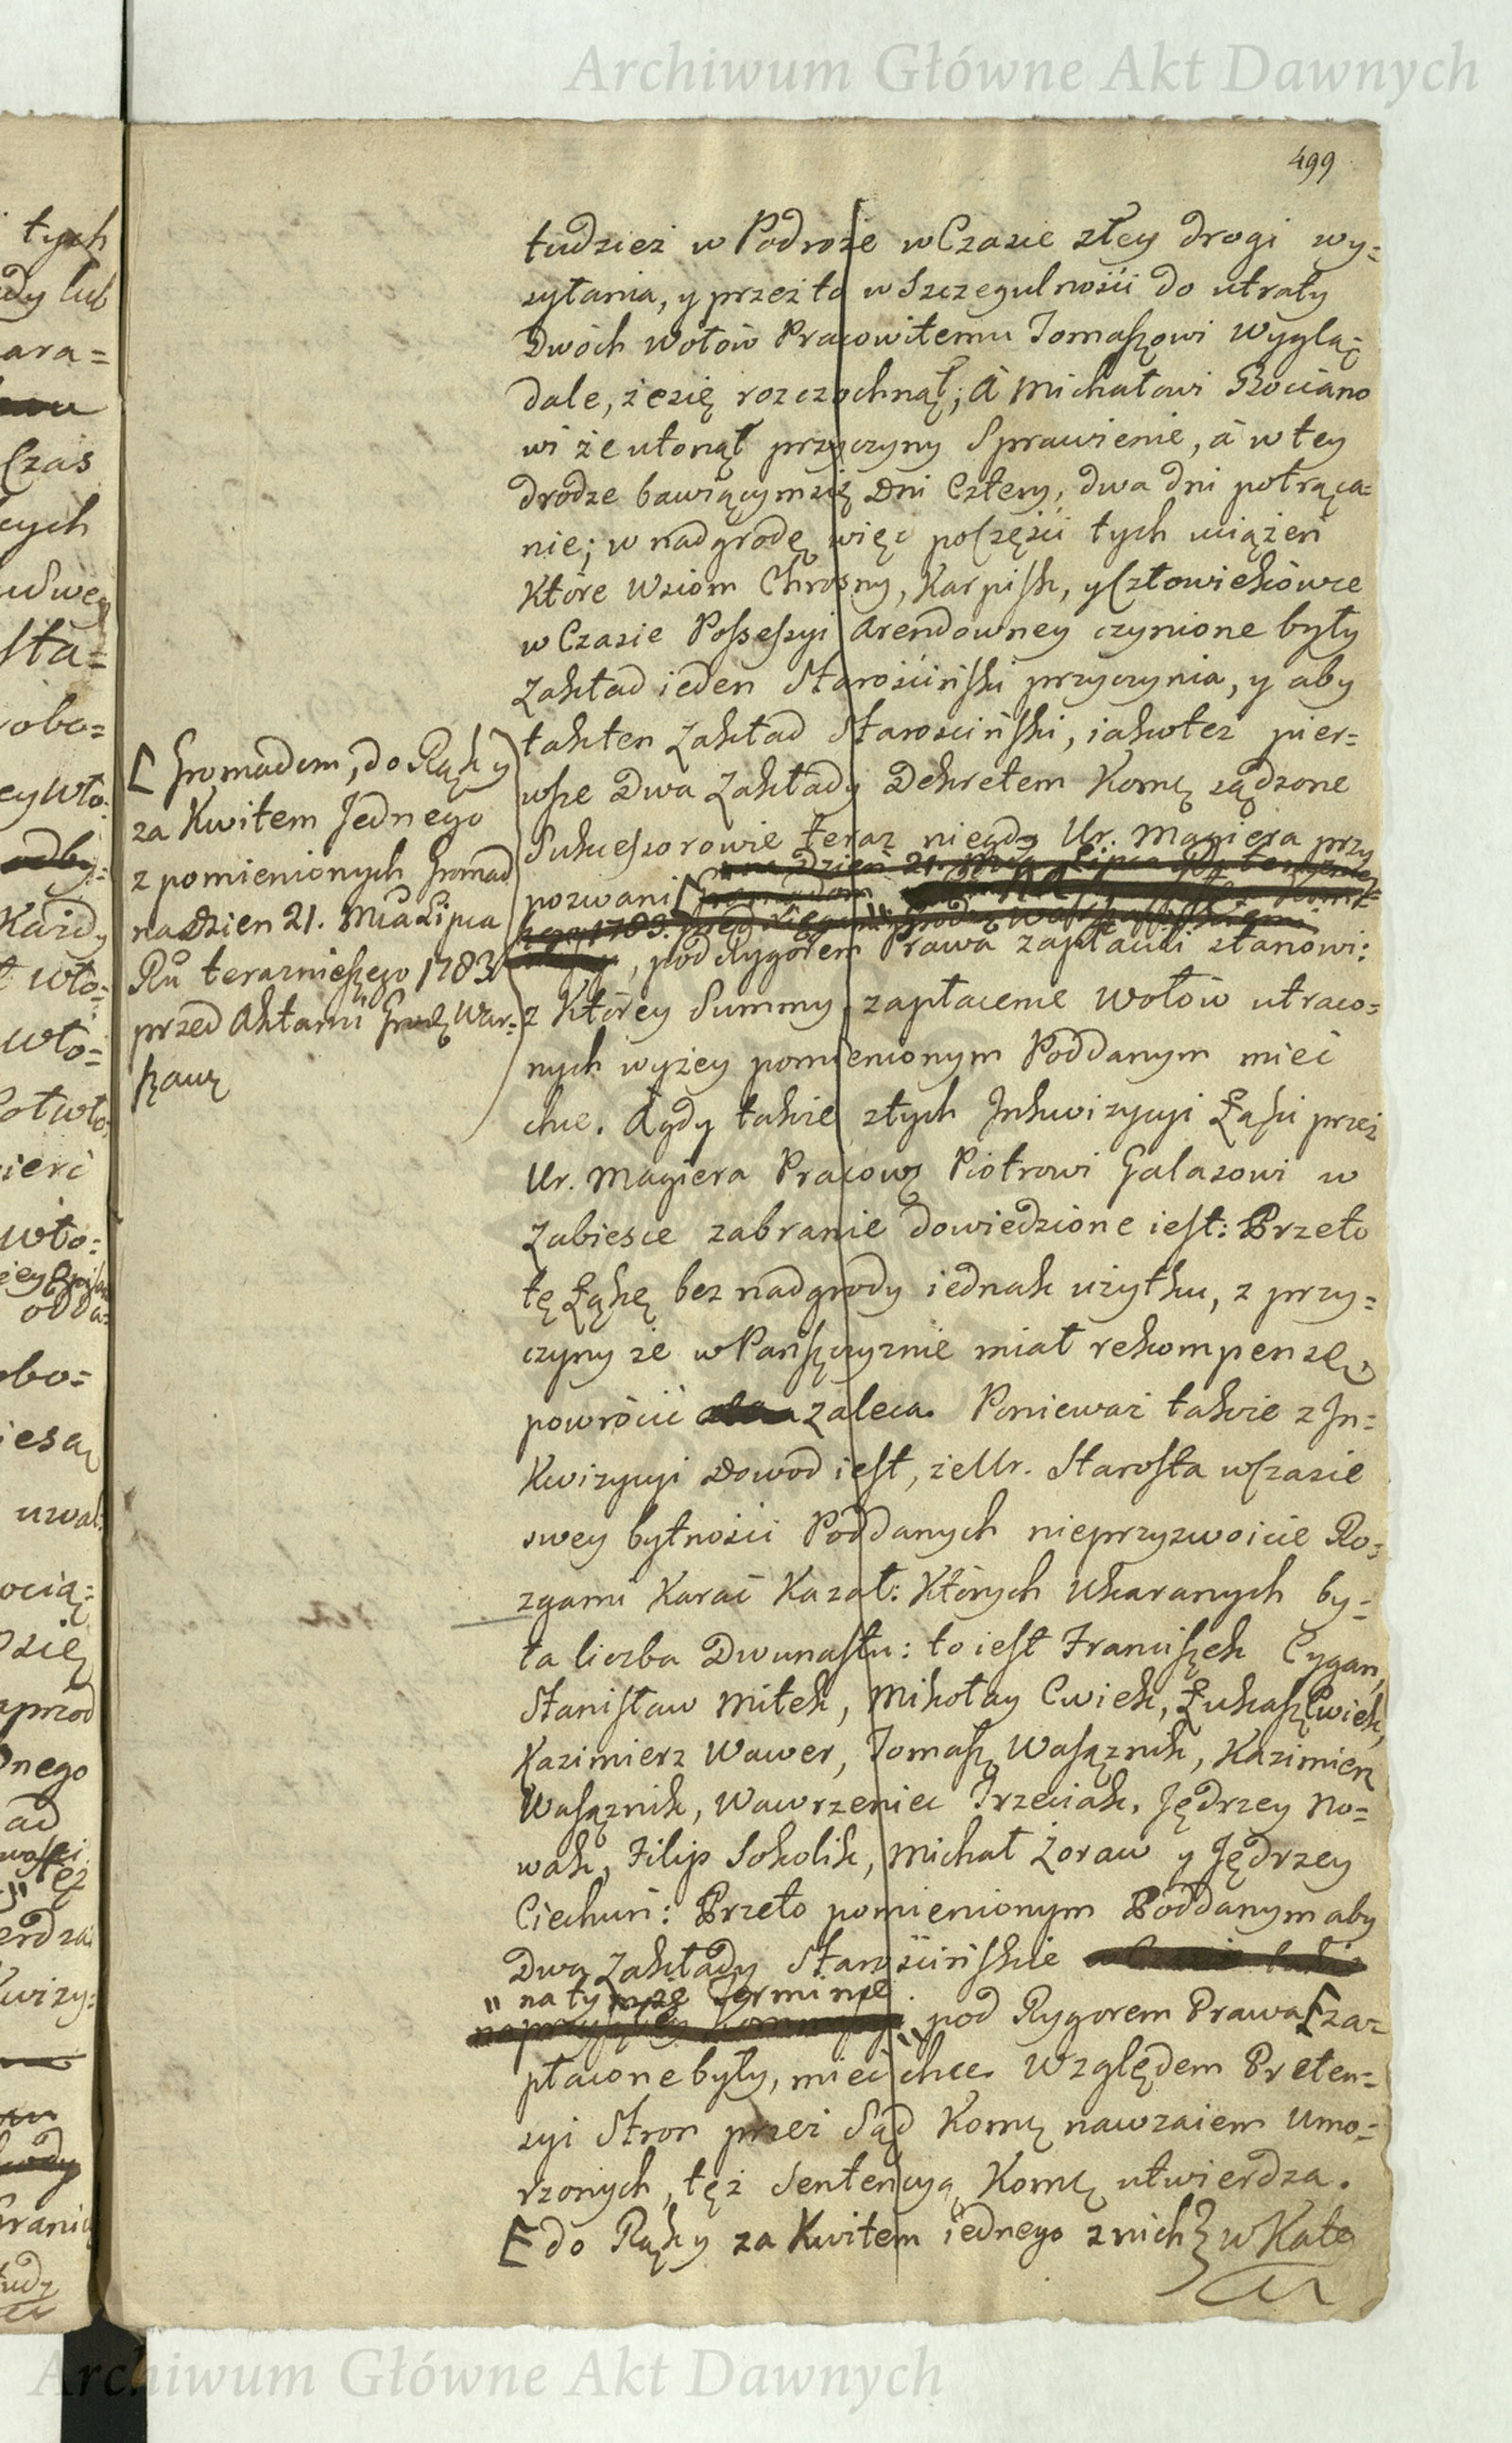 Archiwum Główne Akt Dawnych
499
tudzież w Podroże w Czasie złey drogi wy=
syłania, y przez to w Szczegulności do utraty
Dwóch Wołów Pracowitemu Tomaszowi Wyglą=
dale, że się rozczochnął; à Michałowi Kociano
wi że utonął przyczyny Sprawienie, á w tey
drodze bawiącym się Dni Cztery, dwa dni potrąca=
nie; w nadgrodę więc poczęści tych uciążeń
które Wsiom Chrosny, Karpisk, y Człowiekówce
w Czasie Possessyi Arendowney czynione były
Zakład ieden Starościński przyczynia, y aby
takten Zakład Starosciński, iakoteż pier=
wsze Dwa Zakłady Dekretem Komę sądzone
Sukcessorowie teraz niegdy Ur. Magiera przy
pozwani
na Dzień 21. Mca Lipca
1783.
, pod Rygorem Prawa zapłacili stanowi:
z Którey Summy, zapłacenie Wołów utraco=
nych wyżey pomienionym Poddanym mieć
chce. A gdy także z tych Inkwizycyi Łąki przez
Ur. Magiera Pracowę Piotrowi Galasowi w
Zabiesce zabranie dowiedzione iest: Przeto
tę Łąkę bez nadgrody iednak użytku, z przy=
czyny że w Pańszczyznie miał rekompensę
powrócić zaleca. Ponieważ także z In=
kwizycyi Dowod iest, że Ur. Starosta w Czasie
swey bytności Poddanych nieprzyzwoicie Ro=
zgami Karać Kazał: Których Ukaranych by=
ła liczba Dwunastu: to iest Franciszek Cygan,
Stanisław Miłek, Mikołay Cwiek, Łukasz Cwiek,
Kazimierz Wawer, Tomasz Wasąznik, Kazimierz
Wasąznik, Wawrzeniec Trzeciak, Jędrzey No=
wak, Filip Sokolik, Michał Żoraw y Jędrzey
Ciechuń: Przeto pomienionym Poddanym aby
Dwa Zakłady Starościńskie
" na tymże Terminie
pod Rygorem Prawa [za=
płacone były, mieć chce. Względem Preten=
syi Stron przez Sąd Komę nawzaiem Umo=
rzonych, tęż Sentencyą Komę utwierdza.
[ do Rąk y za Kwitem iednego z nich} w Kate
[ Gromadom, do Rąk y
za Kwitem Jednego
z pomienionych Gromad
na Dzien 21. Mca Lipca
Ru terazniejszego 1783
przed Aktami Grodz War=
szawę
tych
dy lub
ara=
Czas
cych
sta=
robo=
ey wło=
Każdy
wło=
wło=
ierć
wło=
obo=
iesą
uwa
ocią=
Dsię
aprzod
nego
ad
też
erdza
kwizy=
Archiwum Główne Akt Dawnych